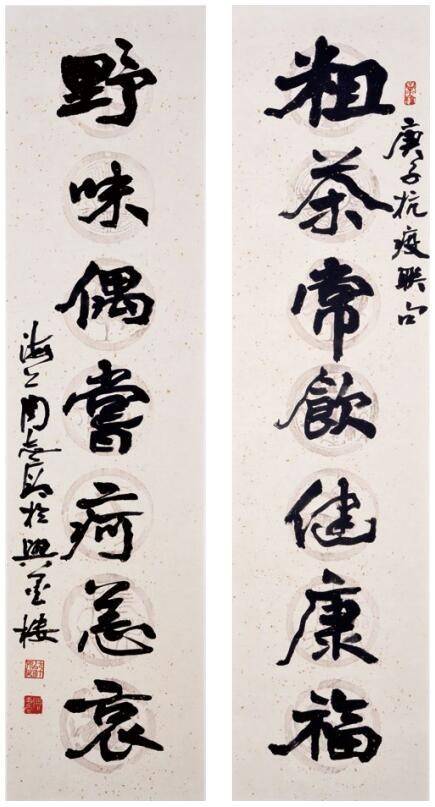 庚子抗疫联句
粗茶常飲健康福
野味偶嘗疴恙哀
海上周志高於興樓